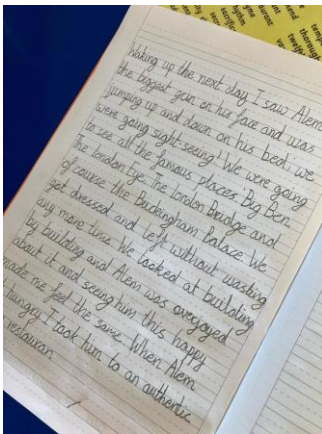 temp
thorough
twelf
rhythm
sacrific
Waking up the next day I saw Alem
the biggest grin on his face and was
jumping up and down on his bed, we
were going sight-seeing! We were going
to see all the famous places Big Ben,
The London Eye, The London Bridge and
of course the Buckingham Palace. We
got dressed and left without wasting
any more time. We looked at building
by building and Alem was overjoyed
about it and seeing him this happy
made me feel the same. When Alem
hungry I took him to an authentic
restauran